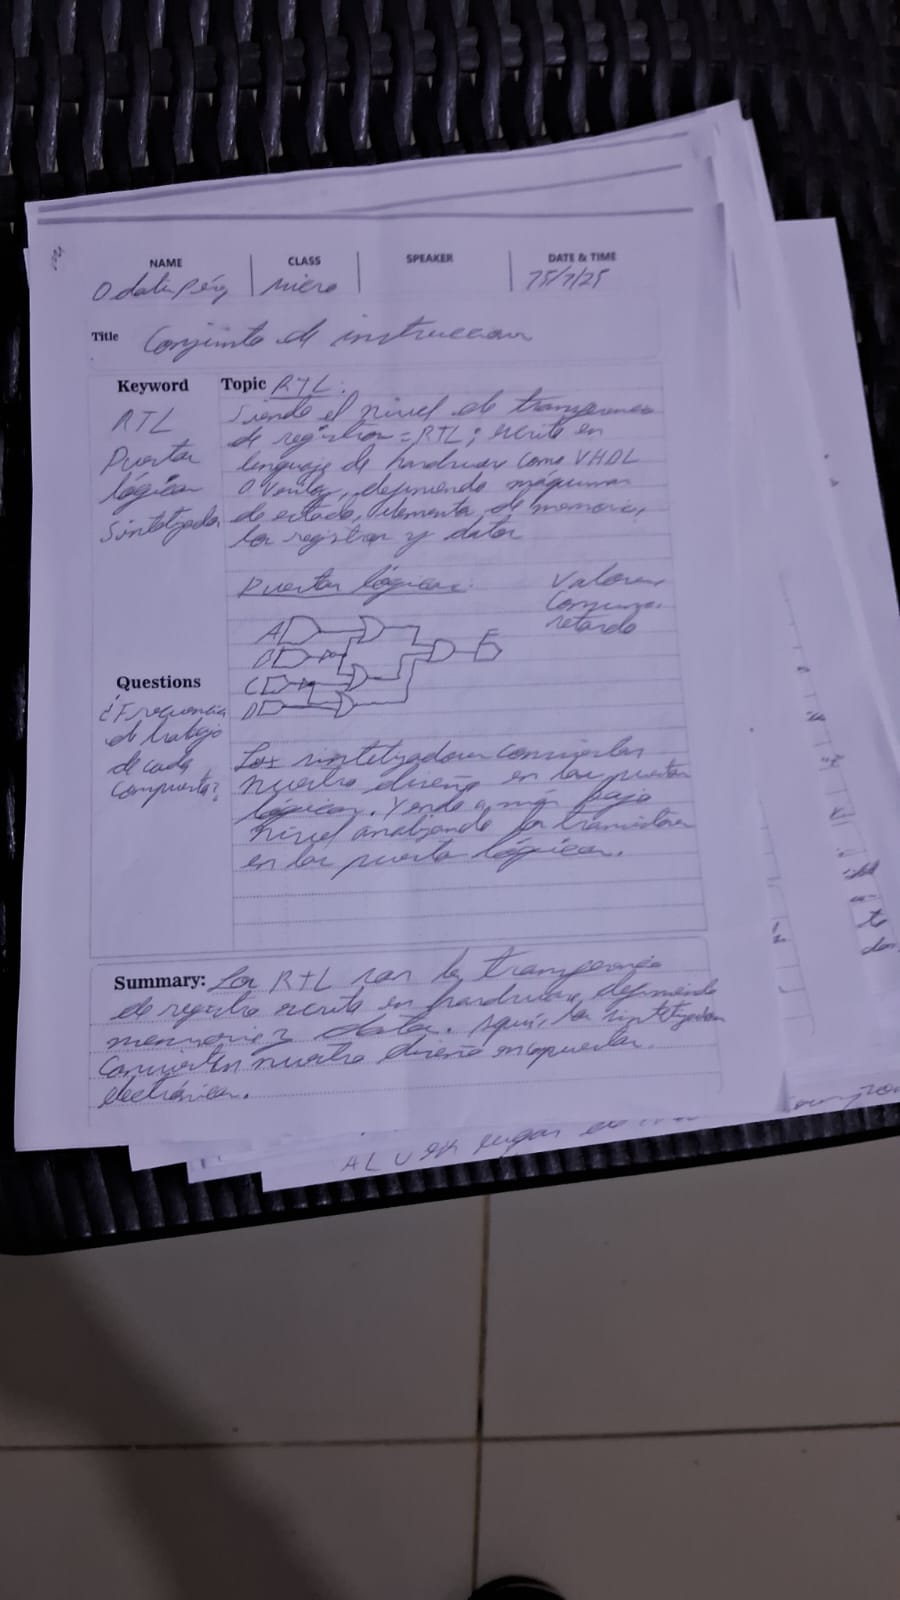 NAME
CLASS
SPEAKER
DATE & TIME
Odalis Pérez
Micro
15/7/25
Title
Conjunto de instruccion
Keyword
RTL
Puertas
lógicas
Sintetizador
Topic RTL:
Siendo el nivel de transferencia
de registros = RTL; escrito en
lenguaje de hardware como VHDL
o Verilog, definiendo máquinas
de estado, elementos de memoria,
los registros y datos
Puertas lógicas:
Valores,
retardo
A
B
C
D
F
Questions
¿Frecuencia
de trabajo
de cada
compuerta?
Los sintetizadores convierten
nuestro diseño en las puertas
lógicas. Yendo a más bajo
nivel analizando los transistores
en las puertas lógicas.
Summary: Los RTL son la transferencia
de registro escrito en hardware, definiendo
memoria y datos. Aquí, los sintetizadores
convierten nuestro diseño en compuertas
electrónicas.
ALU en lugar de